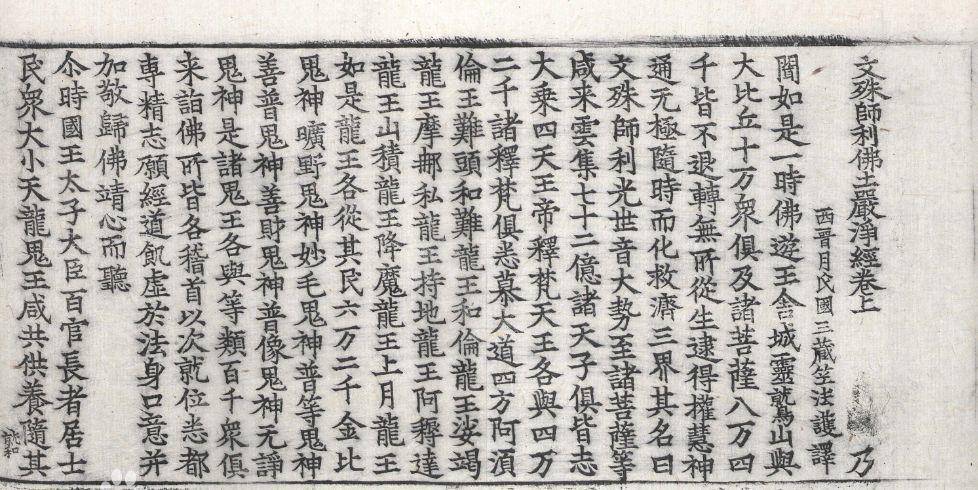 文殊師利佛土嚴淨經卷上　乃
西晉月氏國三藏竺法護譯
聞如是一時佛遊王舍城靈鷲山與
大比丘十万衆俱及諸菩薩八万四
千皆不退轉無所從生逮得權慧神
通无極隨時而化救濟三界其名曰
文殊師利光世音大勢至諸菩薩等
咸来雲集七十二億諸天子俱皆志
大乗四天王帝釋梵天王各與四万
二千諸釋梵俱悉慕大道四方阿湏
倫王難頭和難龍王和倫龍王娑竭
龍王摩那私龍王持地龍王阿耨達
龍王山積龍王降魔龍王上月龍王
如是龍王各從其民六万二千金比
鬼神曠野鬼神妙毛鬼神普等鬼神
善普鬼神善財鬼神普像鬼神无諍
鬼神是諸鬼王各與等類百千衆俱
来詣佛所皆各稽首以次就位悉都
専精志願經道飢虚於法身口意并
加敬歸佛靖心而聽
尒時國王太子大臣百官長者居士
民衆大小天龍鬼王咸共供養隨其